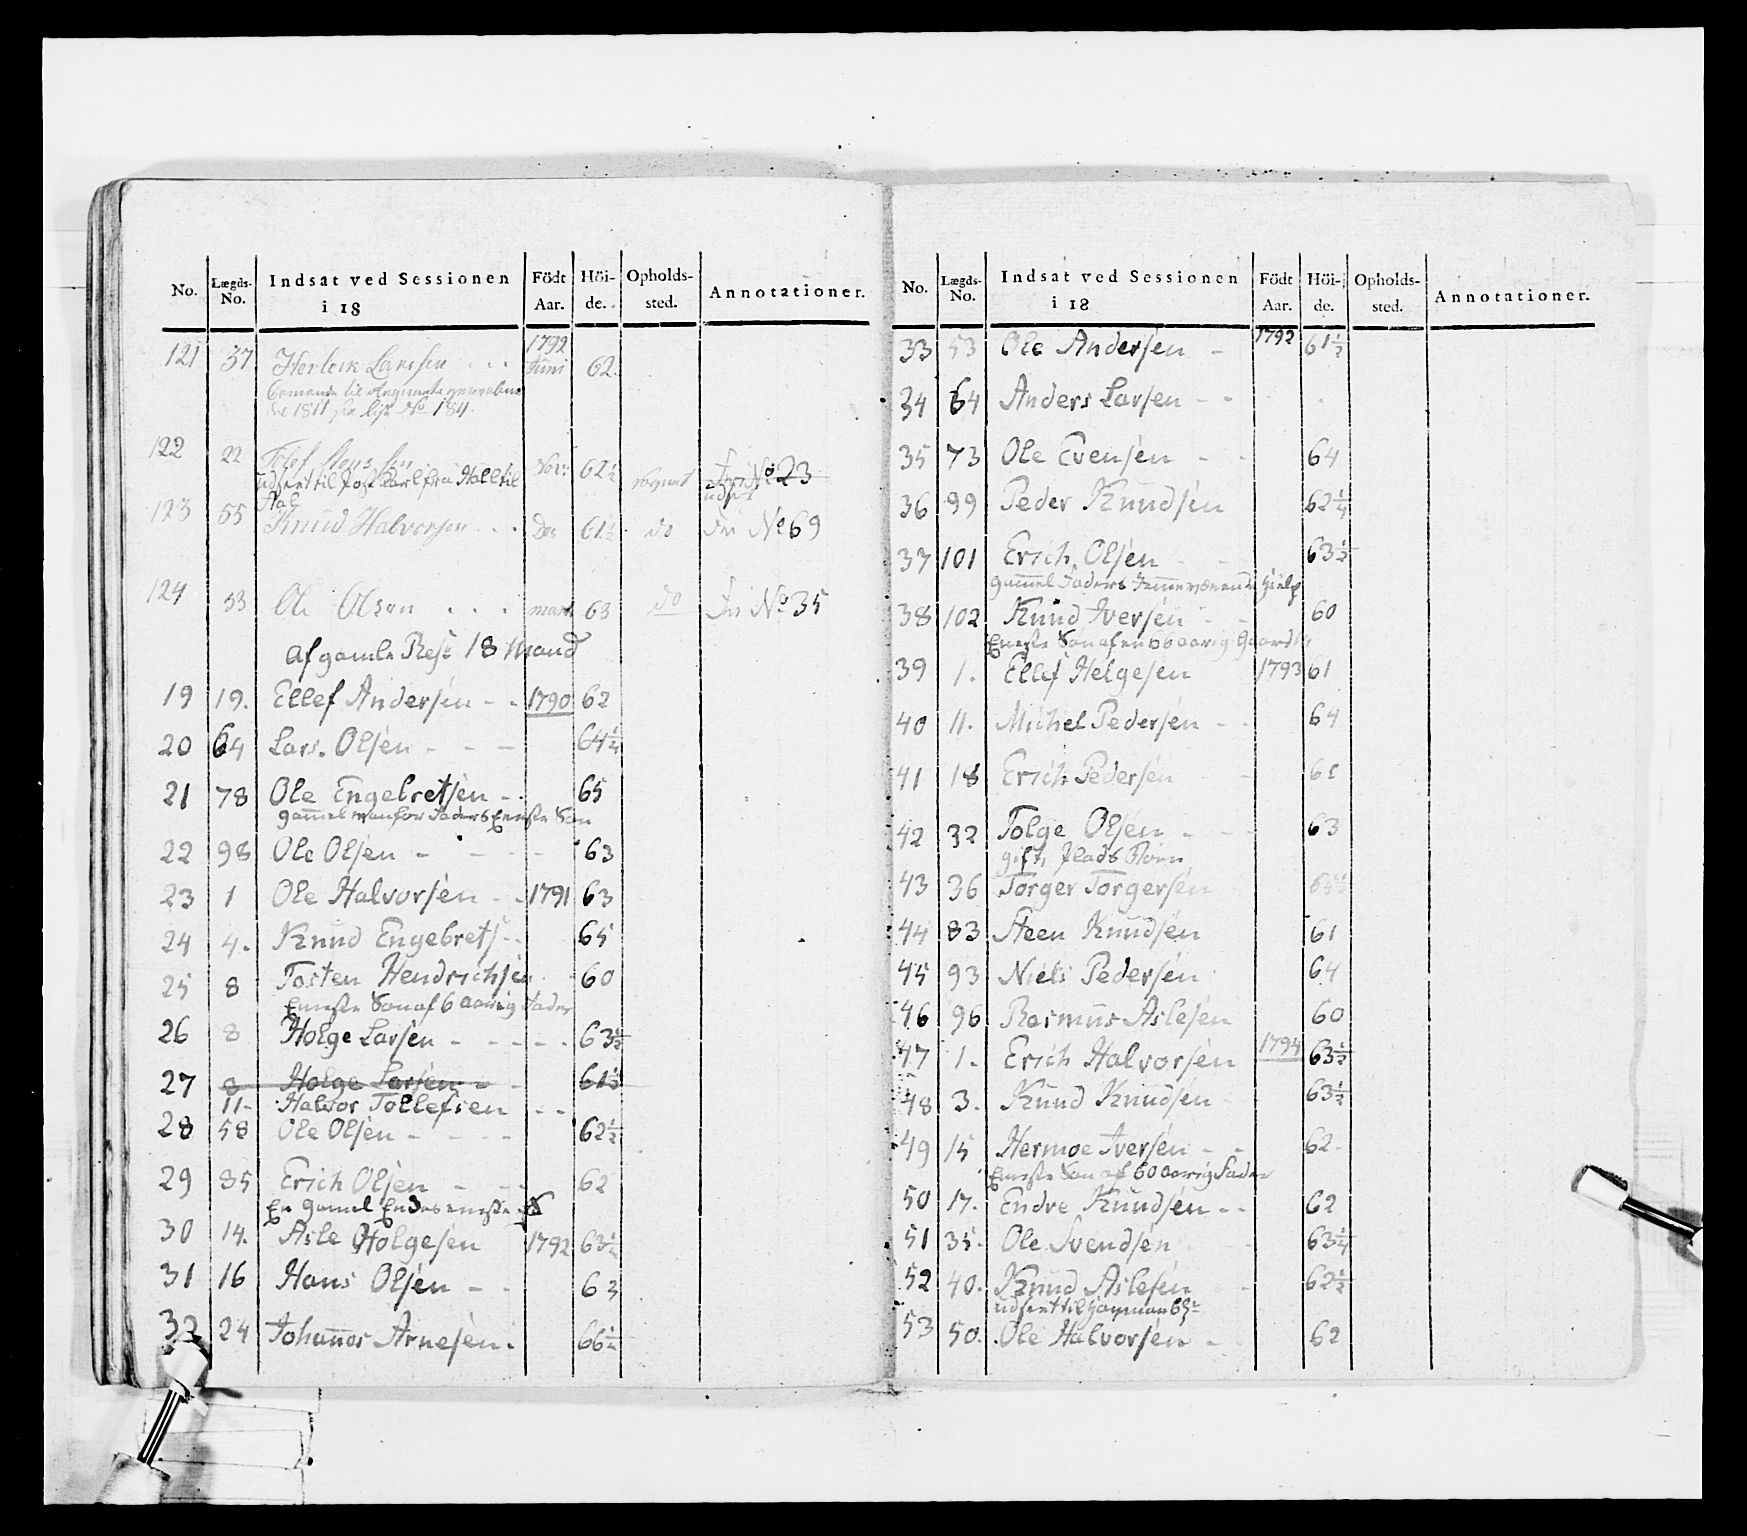 No. Lægds-No. Indsat ved Sessionen i 18 Födt Aar. Höi-de. Opholds-sted. Annotationer.
121 37 Larsen 1792 Juni 62
1811 No 184
122 22 62½ No 23
udsent til fra Hall til
Aal
123 55 Knud Halvorsen Dec 61½ do No 69
124 53 Ole Olsen 63 do No 35
af gamle Rest 18 Mand
19 19. Ellef Andersen 1790 62
20 64 Lars Olsen 64¼
21 78 Ole Engebretsen 65
gammel Faders Eneste Søn
22 98 Ole Olsen 63
23 1 Ole Halvorsen 1791 63
24 4. Knud Engebrets 65
25 8 Tosten Hendrichsen 60
Eneste Søn af 60 aarig Fader
26 8 Holge Larsen 63½
27 8 Holge Larsen 61½
11. Halvor Tollefsen
28 58 Ole Olsen 62½
29 85 Erich Olsen 62
En gamel eneste
30 14. Asle Holgesen 1792 63½
31 16 Hans Olsen 63
32 24 Johannes Arnesen 66½
No. Lægds-No. Indsat ved Sessionen i 18 Födt Aar. Höi-de. Opholds-sted. Annotationer.
33 53 Ole Andersen 1792 61½
34 64 Anders Larsen
35 73 Ole Evensen 64
36 99 Peder Knudsen 62¼
37 101 Erich Olsen 63½
gammel Faders hielp
38 102 Knud Iversen 60
Eneste Søn af en aarig
39 1. Ellef Helgesen 1793 61
40 11. Michel Pedersen 64
41 18 Erich Pedersen 61
42 32 Tolge Olsen 63
gift, Plads
43 36 Torger Torgersen
44 83 Steen Knudsen 61
45 93 Niels Pedersen 64
46 96 Rasmus Aslesen 60
47 1. Erich Halvorsen 1794 63½
48 3. Knud Knudsen 63½
49 15 Hermoe Iversen 62
Eneste Søn af 60 aarig Fader
50 17. Endre Knudsen 62
51 35. Ole Svendsen 63¼
52 40. Knud Aslesen 62½
udsent til
53 50. Ole Halvorsen 62